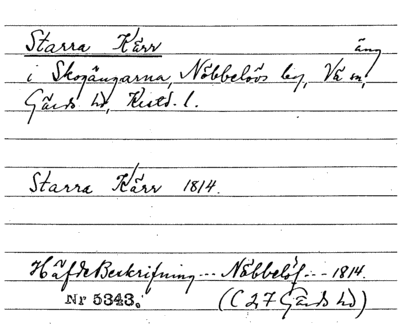 Starra Kärr äng
i Skogängarna, Nöbbelövs by, Vä sn,
Gärds hd, Krist. l.
Starra Kärr 1814.
Häfde Beskrifning --- Nöbbelöf --- 1814.
Nr 5343. (C 27 Gärds hd)